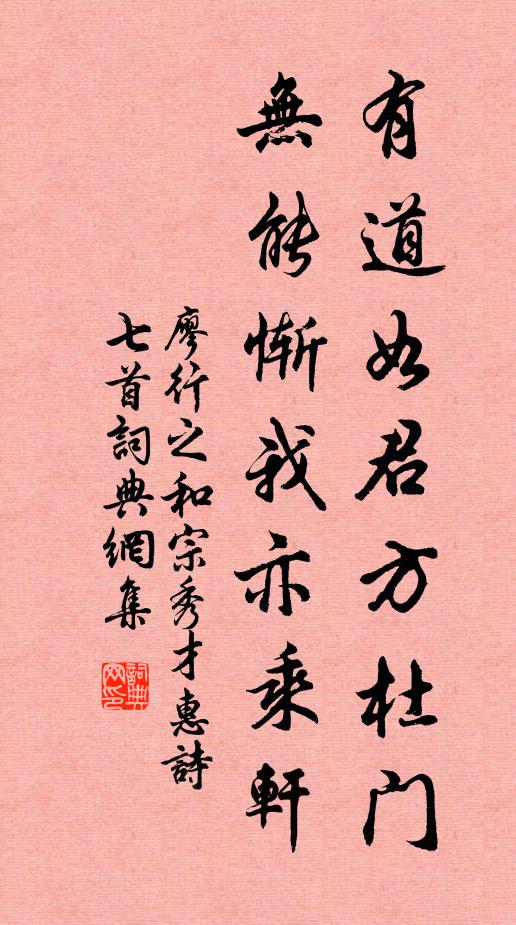 有道如君方杜門
無能慚我亦乘軒
廖行之和宗秀才惠詩
七首詞典網集
詞典網印